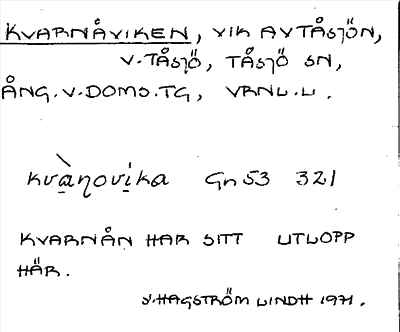 KVARNÅVIKEN, VIK AV TÅSJÖN,
V. TÅSJÖ, TÅSJÖ SN,
ÅNG. V. DOMS. TG, VRNL. L.
kvàṇovi̲ka Gn 53 321
KVARNÅN HAR SITT UTLOPP
HÄR.
HAGSTRÖM LINDH 1971.